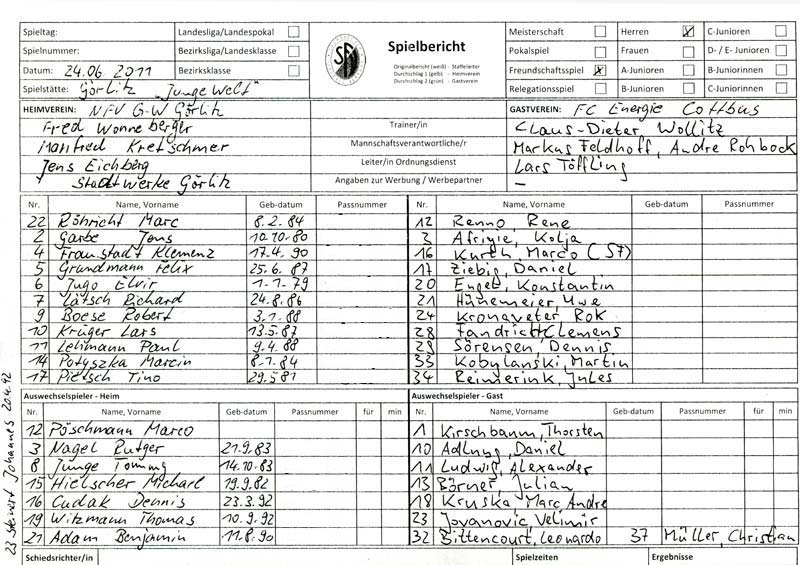 Spielbericht
Originalbericht (weiß) - Staffelleiter
Durchschlag 1 (gelb) - Heimverein
Durchschlag 2 (grün) - Gastverein
Spieltag: Landesliga/Landespokal
Spielnummer: Bezirksliga/Landesklasse
Datum: 24.06 2011 Bezirksklasse
Spielstätte: Görlitz "Junge Welt"
Meisterschaft Herren X C-Junioren
Pokalspiel Frauen D- / E- Junioren
Freundschaftsspiel X A-Junioren B-Juniorinnen
Relegationsspiel B-Junioren C-Juniorinnen
HEIMVEREIN: NFV G-W Görlitz GASTVEREIN: FC Energie Cottbus
Fred Wonneberger Trainer/in Claus-Dieter, Wollitz
Manfred Kretschmer Mannschaftsverantwortliche/r Markus Feldhoff, Andre Rohbock
Jens Eichberg Leiter/in Ordnungsdienst Lars Töffling
Stadtwerke Görlitz Angaben zur Werbung / Werbepartner –
Nr. Name, Vorname Geb-datum Passnummer Nr. Name, Vorname Geb-datum Passnummer
22 Röhricht Marc 8.2.84 12 Renno Rene
2 Garbe Jens 10.10.80 3 Afriyie, Kolja
4 Fraustadt Klemenz 17.4.90 16 Kurth, Marco (S7)
5 Grundmann Felix 25.6.87 17 Ziebig, Daniel
6 Jugo Elvir 1.1.79 20 Engel, Konstantin
7 Lätsch Richard 24.8.86 21 Hünemeier, Uwe
9 Boese Robert 3.1.88 24 Kronaveter, Rok
10 Krüger Lars 13.5.87 28 Fandrich, Clemens
11 Lehmann Paul 9.4.88 29 Sörensen, Dennis
14 Potyszka Marcin 8.1.84 33 Kobylanski, Martin
17 Pietsch Tino 29.5.81 34 Reimerink, Jules
Auswechselspieler - Heim Auswechselspieler - Gast
Nr. Name, Vorname Geb-datum Passnummer für min Nr. Name, Vorname Geb-datum Passnummer für min
12 Pöschmann Marco 1 Kirschbaum, Thorsten
3 Nagel Rutger 21.9.83 10 Adlung, Daniel
8 Junge Tommy 14.10.83 11 Ludwig, Alexander
15 Hielscher Michael 19.9.82 13 Börner, Julian
16 Cudak Dennis 23.3.92 18 Kruska, Marc Andre
19 Witzmann Thomas 10.9.92 23 Jovanovic, Velimir
21 Adam Benjamin 11.8.90 32 Bittencourt, Leonardo 37 Müller, Christian
Schiedsrichter/in Spielzeiten Ergebnisse
Johannes 20.4.92